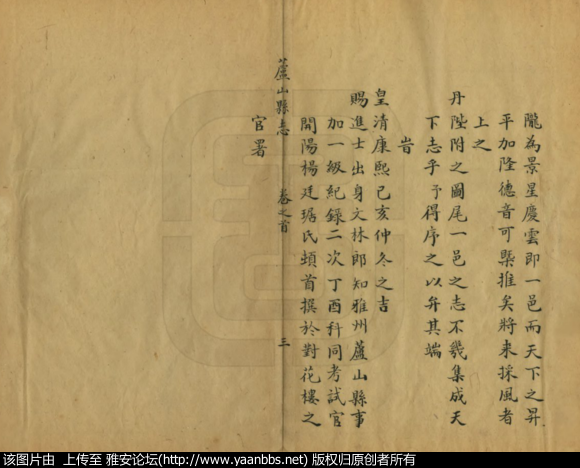 隴為景星慶雲即一邑而天下之昇
平加隆德音可槩推矣將来採風者
上之
丹陛附之圖尾一邑之志不幾集成天
下志乎予得序之以弁其端
旹
皇清康熙己亥仲冬之吉
賜進士出身文林郎知雅州蘆山縣事
加一級紀録二次丁酉科同考試官
開陽楊廷琚氏頓首撰於對花樓之
官署
蘆山縣志 卷之首 三
该图片由 上传至 雅安论坛(http://www.yaanbbs.net) 版权归原创者所有